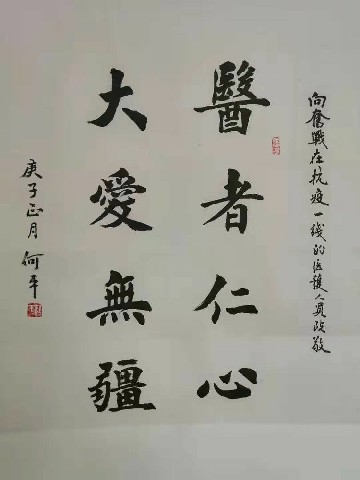 向奮戰在抗疫一线的医護人員致敬
醫者仁心
大愛無疆
庚子正月何平